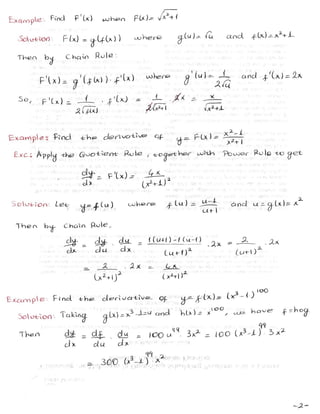 Example: Find F'(x) when F(x) = √x²+1
Solution: F(x) = g(f(x)) where g(u) = √u and f(x) = x²+1
Then by Chain Rule:
F'(x) = g'(f(x)) · f'(x) where g'(u) = 1/2√u and f'(x) = 2x
So, F'(x) = 1/2√f(x) · f'(x) = 1/2√x²+1 · 2x = x/√x²+1
Example: Find the derivative of y = F(x) = x²-1/x²+1
Exc: Apply the Quotient Rule, together with Power Rule to get
dy/dx = F'(x) = 4x/(x²+1)²
Solution: Let y = f(u) where f(u) = u-1/u+1 and u = g(x) = x²
Then by Chain Rule,
dy/dx = dy/du · du/dx = 1(u+1)-1(u-1)/(u+1)² · 2x = 2/(u+1)² · 2x
= 2/(x²+1)² · 2x = 4x/(x²+1)²
Example: Find the derivative of y = f(x) = (x³-1)¹⁰⁰
Solution: Taking g(x) = x³-1 = u and h(x) = x¹⁰⁰, we have f = hog
Then dy/dx = df/du · du/dx = 100 u⁹⁹ 3x² = 100 (x³-1)⁹⁹ 3x²
= 300 (x³-1)⁹⁹ x²
-2-